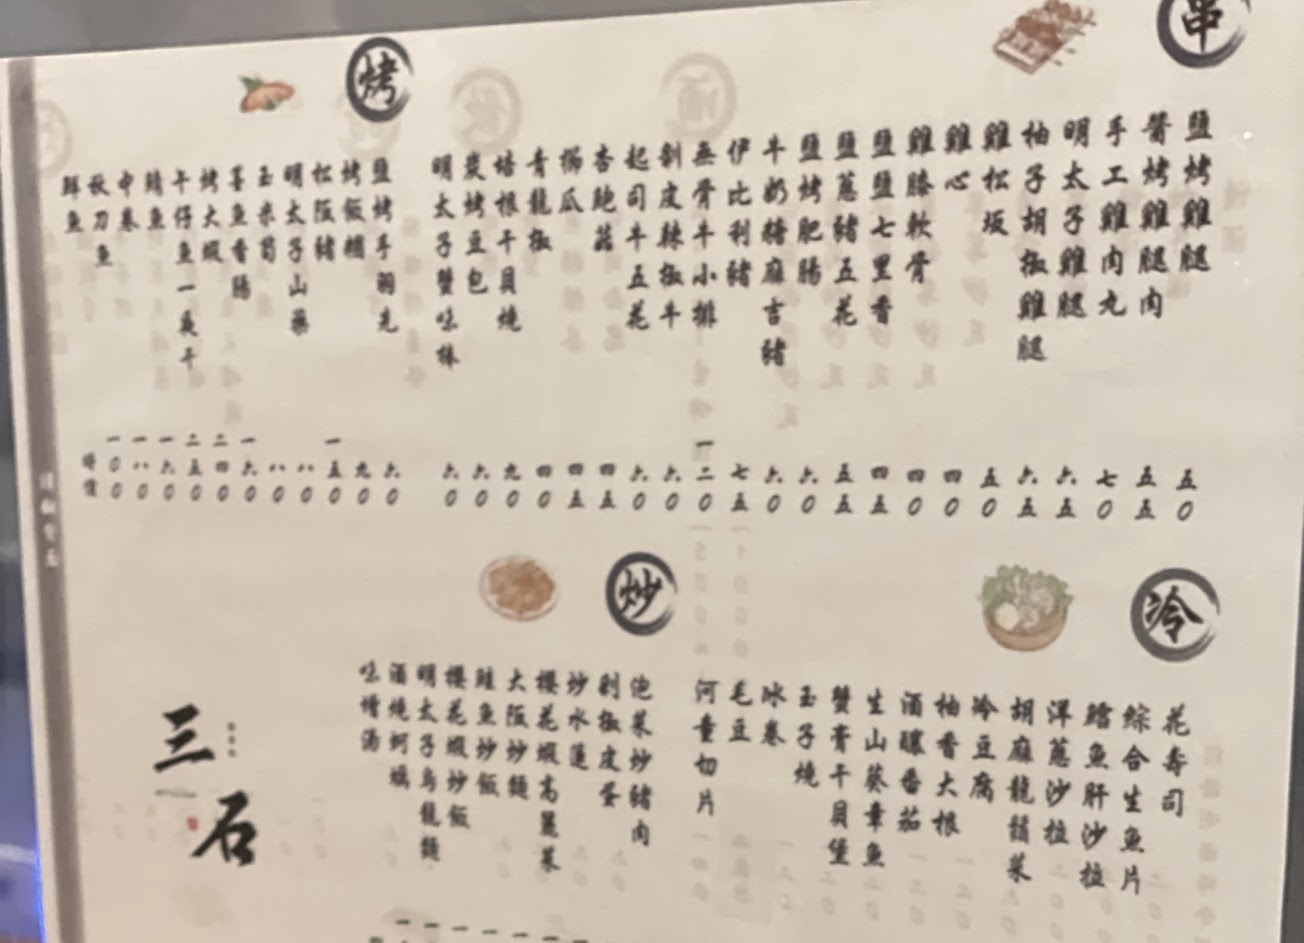 串
鹽烤雞腿
醬烤雞腿肉
手工雞肉丸
明太子雞腿
柚子胡椒雞腿
雞松坂
雞心
雞膝軟骨
鹽鹽七里香
鹽蔥豬五花
鹽烤肥腸
牛奶糖麻吉豬
伊比利豬
無骨牛小排
剝皮辣椒牛
起司牛五花
杏鮑菇
櫛瓜
青龍椒
培根干貝燒
炭烤豆包
明太子蟹味棒
五〇
五五
七〇
六五
六五
五〇
四〇
四〇
四五
五五
六〇
六〇
七五
一二〇
六〇
六〇
四五
四五
四〇
九〇
六〇
六〇
烤
鹽烤手羽先
烤飯糰
松阪豬
明太子山藥
玉米筍
墨魚香腸
烤大蝦
午仔魚一夜干
鯖魚
中卷
秋刀魚
鮮魚
六〇
九〇
一五〇
八〇
八〇
一六〇
二四〇
二五〇
一六〇
一八〇
一〇〇
時價
冷
花壽司
綜合生魚片
鱈魚肝沙拉
洋蔥沙拉
胡麻龍鬚菜
冷豆腐
柚香大根
酒釀番茄
生山葵章魚
蟹膏干貝堡
玉子燒
冰卷
毛豆
河童切片
炒
泡菜炒豬肉
剝椒皮蛋
炒水蓮
櫻花蝦高麗菜
大阪炒麵
鮭魚炒飯
櫻花蝦炒飯
明太子烏龍麵
酒燒蚵蠣
味增湯
三石